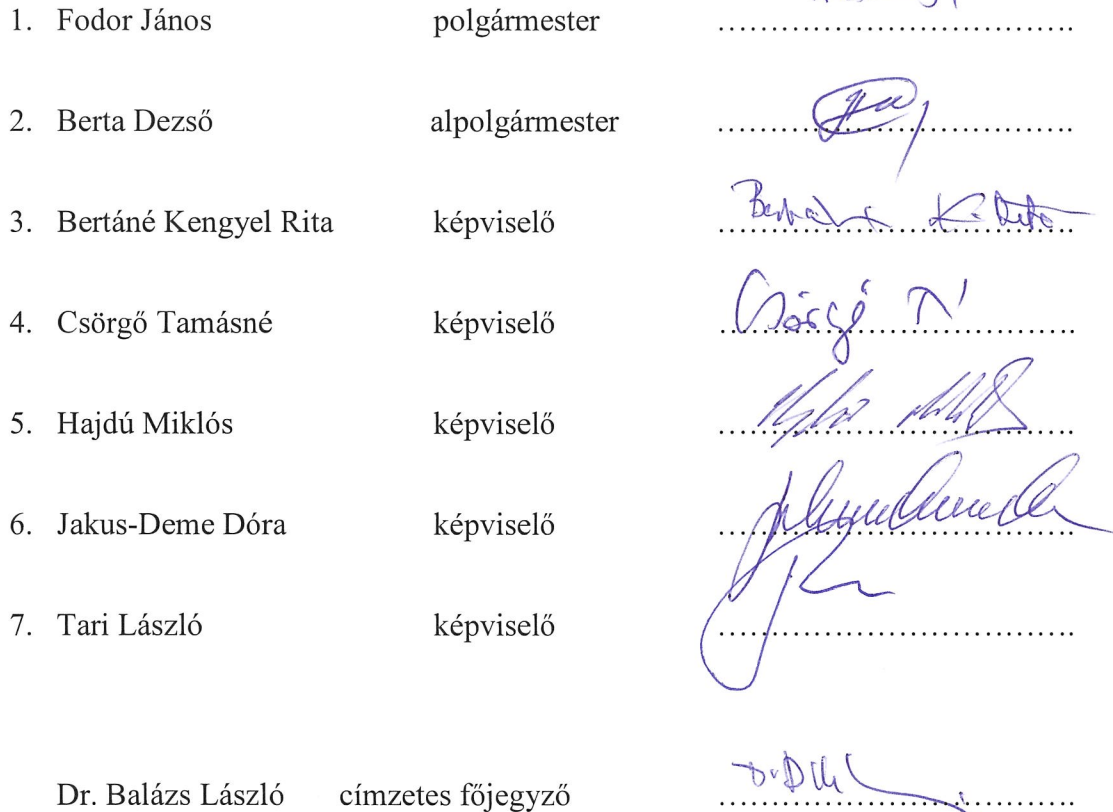 1. Fodor János polgármester ……………………………….
2. Berta Dezső alpolgármester ……………………………….
3. Bertáné Kengyel Rita képviselő ……………………………….
4. Csörgő Tamásné képviselő Csörgő T
5. Hajdú Miklós képviselő ……………………………….
6. Jakus-Deme Dóra képviselő ……………………………….
7. Tari László képviselő ……………………………….
Dr. Balázs László címzetes főjegyző ……………………………….